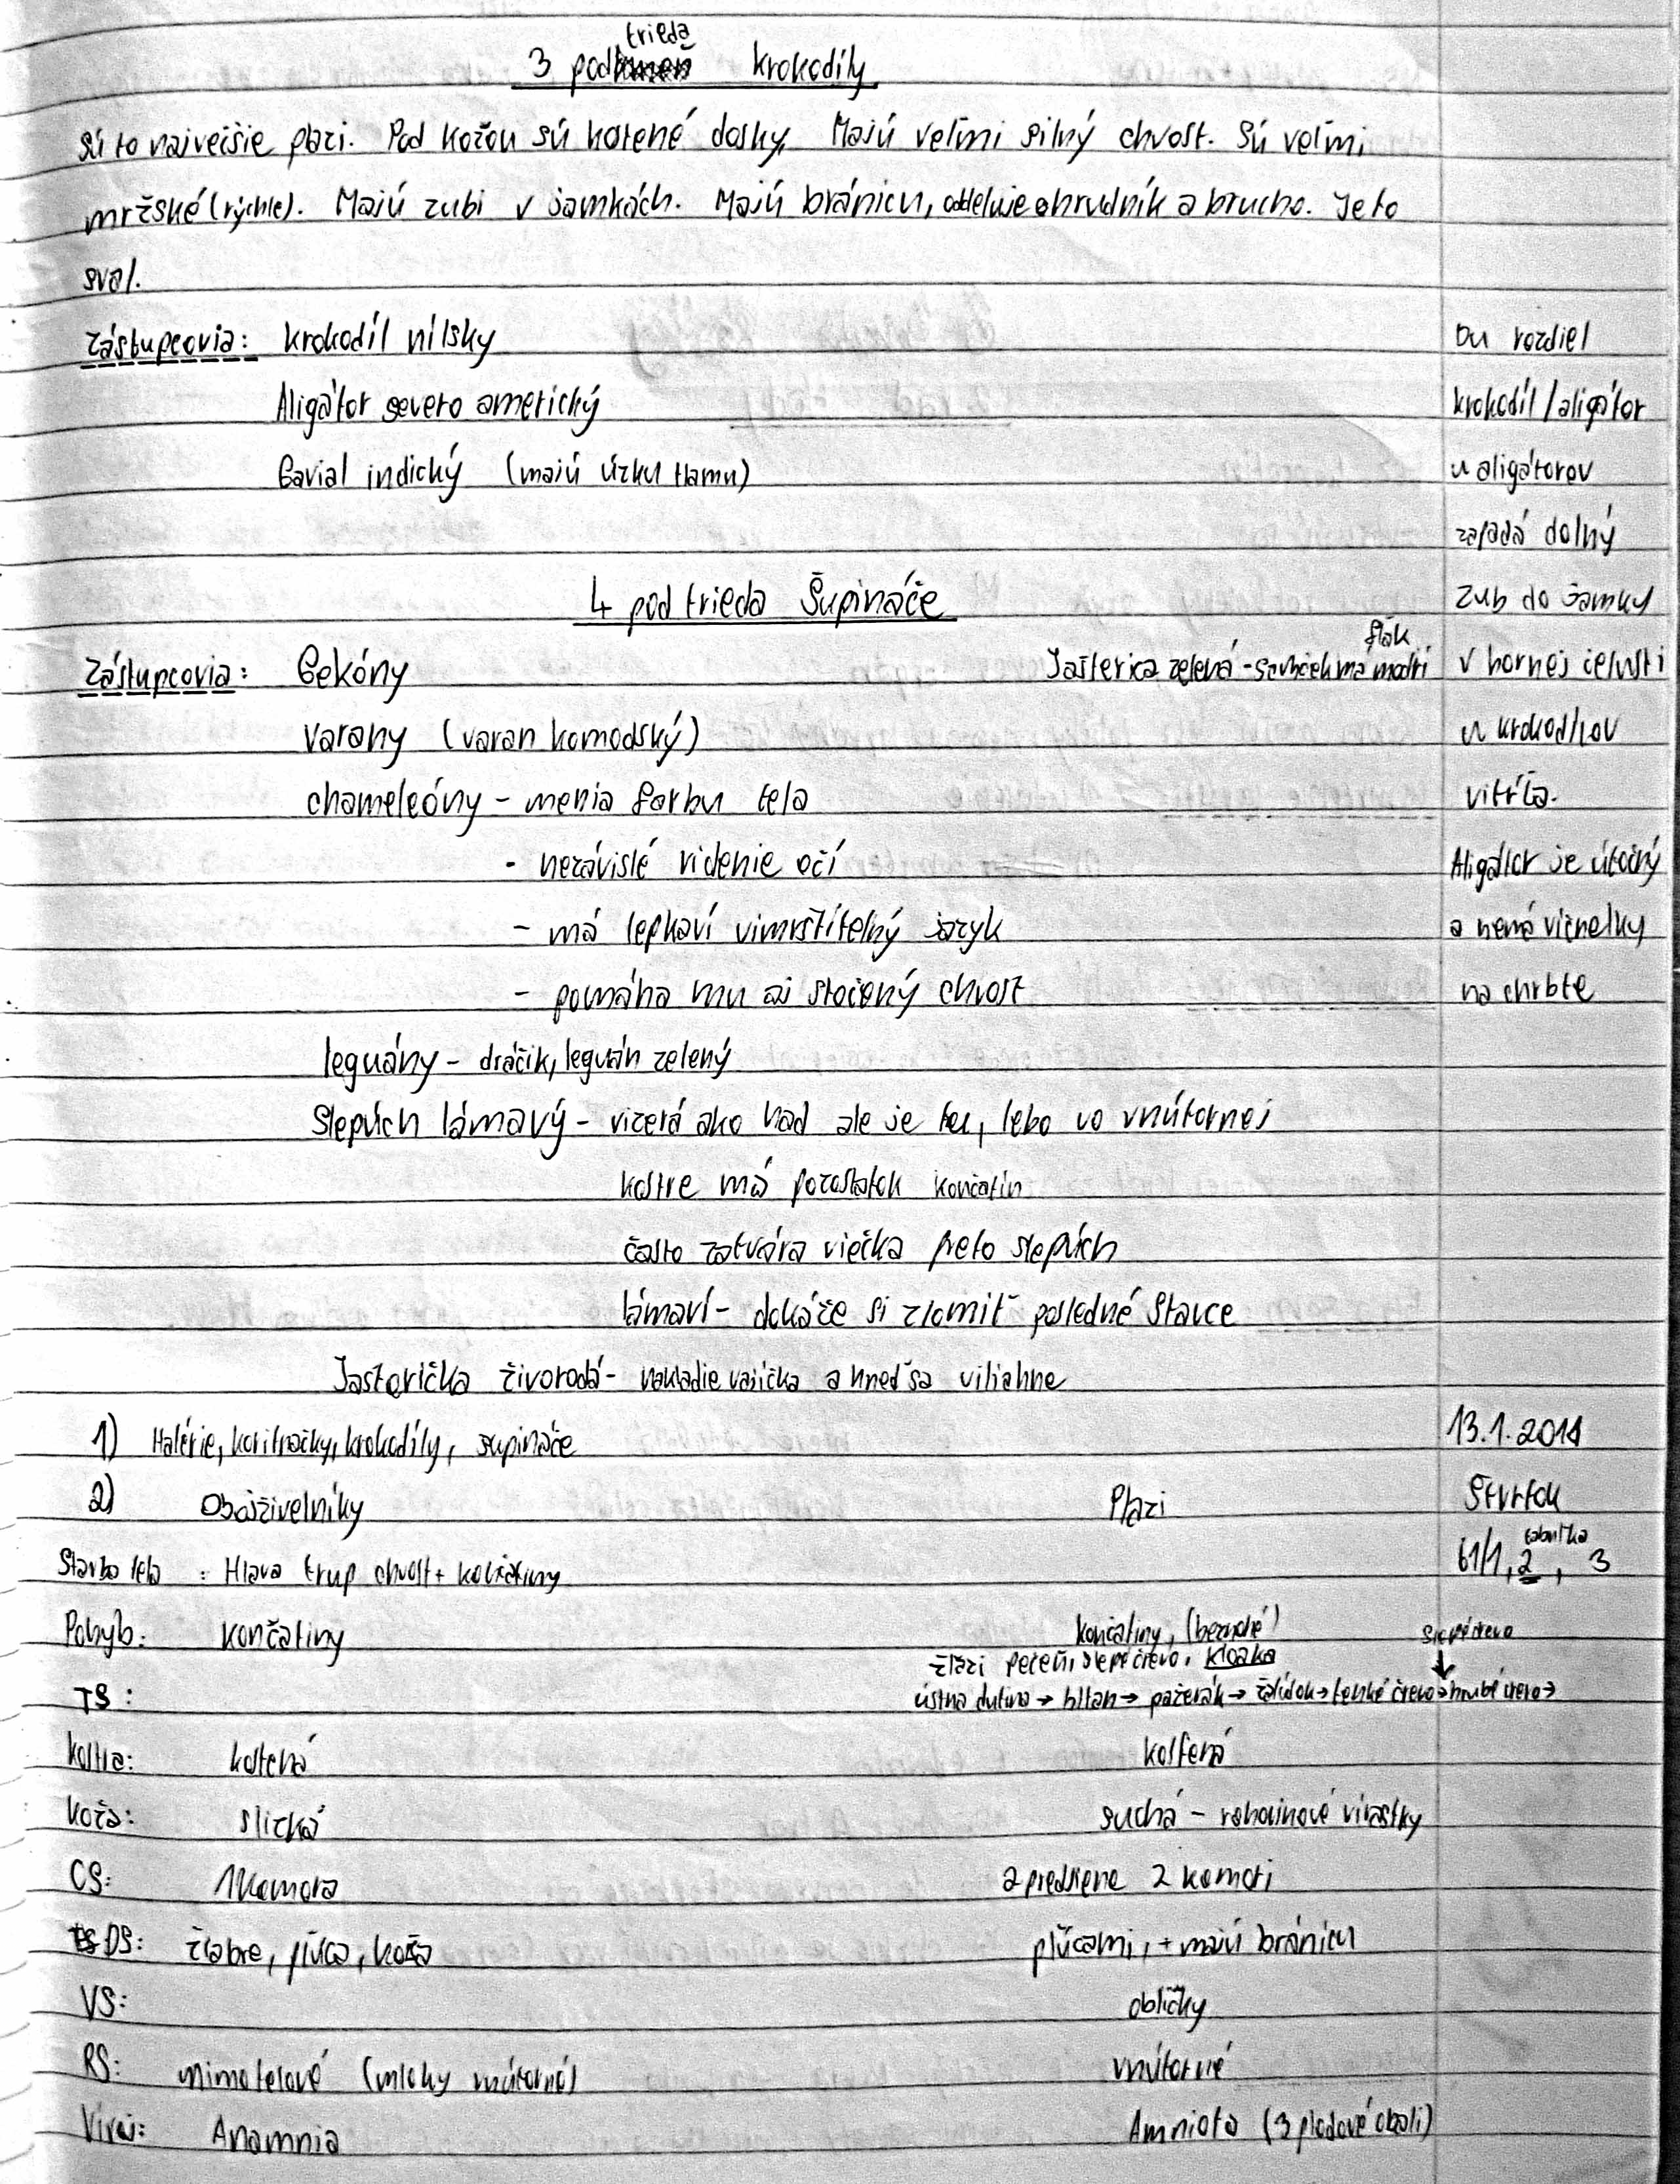 3 podtrieda krokodíly
Sú to največšie plazi. Pod kožou sú kostené dosky. Majú veľmi silný chvost. Sú veľmi
mržské (rýchle). Majú zubi v jamkách. Majú bránicu, oddeluje ohrudník a brucho. Je to
sval.
Zástupcovia: krokodíl nílsky
Aligátor severo americký
Gavial indický (majú úzku tlamu)
Du rozdiel
krokodíl/aligátor
u aligátorov
zapadá dolný
zub do jamky
v hornej čelusti
u krokodílov
vitŕča.
Aligátor je útočný
a nemá vičnelky
na chrbte
4 pod trieda Šupináče
Zástupcovia: Gekóny
Jašterica zelená - samček má modrí flak
varany (varan komodský)
chameleóny - menia farbu tela
- nezávislé videnie očí
- má lepkaví vimrštiteľný jazyk
- pomáha mu aj stočený chvost
leguány - dráčik, leguán zelený
Slepúch lámavý - vizerá ako had ale je tu, lebo vo vnútornej
kostre má pozostatok končatín
často zatvára viečka preto slepúch
lámaví - dokáže si zlomiť posledné stavce
Jašterička živorodá - nakladie vajíčka a hneď sa viliahne
13.1.2011
Štvrtok
61/1, 2, 3
tabuľka
1) Hatérie, koritnačky, krokodíly, šupináče
2) Obojživelníky Plazi
Stavba tela : Hlava trup chvost + končatiny
Pohyb: končatiny končatiny, (beznohé)
žľazi pečeň, slepé črevo, kloaka
slepé črevo
TS: ústna dutina → hltan → pažerák → žalúdok → tenké črevo → hrubé črevo →
kostra: kostená kostená
koža: slizká suchá - rohovinové virastky
CS: 1 komora 2 predsiene 2 komori
DS: žiabre, pľúca, koža pľúcami, + majú bránicu
VS: obličky
RS: mimotelové (mloky vnútorné) vnútorné
Vívoj: Anamnia Amniota (3 plodové obali)